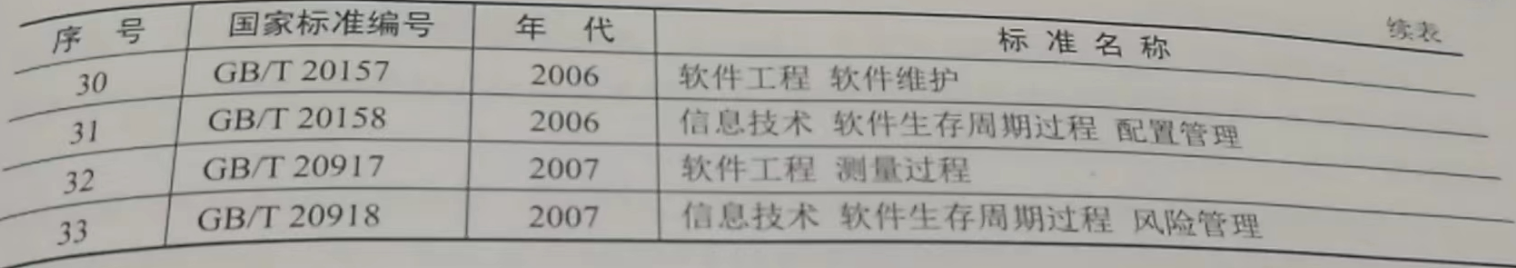 续表
序 号 国家标准编号 年 代 标 准 名 称
30 GB/T 20157 2006 软件工程 软件维护
31 GB/T 20158 2006 信息技术 软件生存周期过程 配置管理
32 GB/T 20917 2007 软件工程 测量过程
33 GB/T 20918 2007 信息技术 软件生存周期过程 风险管理